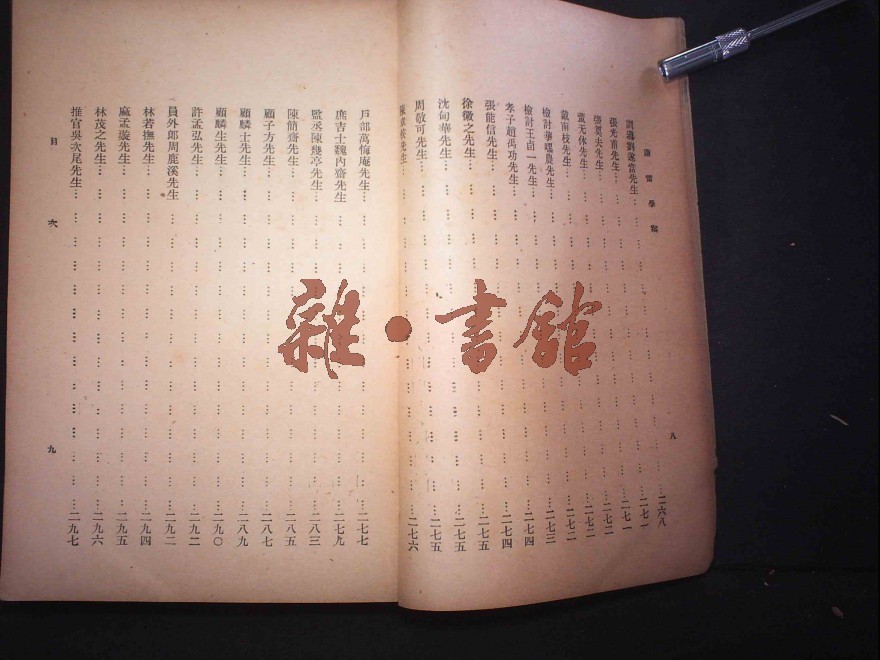 南雷學案
八
訓導劉先生……二六八
張元岵先生……二七一
先生……二七一
董无休先生……二七二
戴南枝先生……二七二
檢討華嘿農先生……二七二
檢討王卣一先生……二七三
孝子趙禹功先生……二七四
張能信先生……二七四
徐徽之先生……二七五
沈甸華先生……二七五
周敬可先生……二七五
陳先生……二七六
戶部萬悔庵先生……二七七
庶吉士魏內齋先生……二七九
監丞陳幾亭先生……二八三
陳簡齋先生……二八五
顧子方先生……二八七
顧麟士先生……二八九
顧麟生先生……二九〇
許孟弘先生……二九二
員外郎周鹿溪先生……二九二
林若撫先生……二九四
麻孟璇先生……二九五
林茂之先生……二九六
推官吳次尾先生……二九七
目次
九
雜·書館